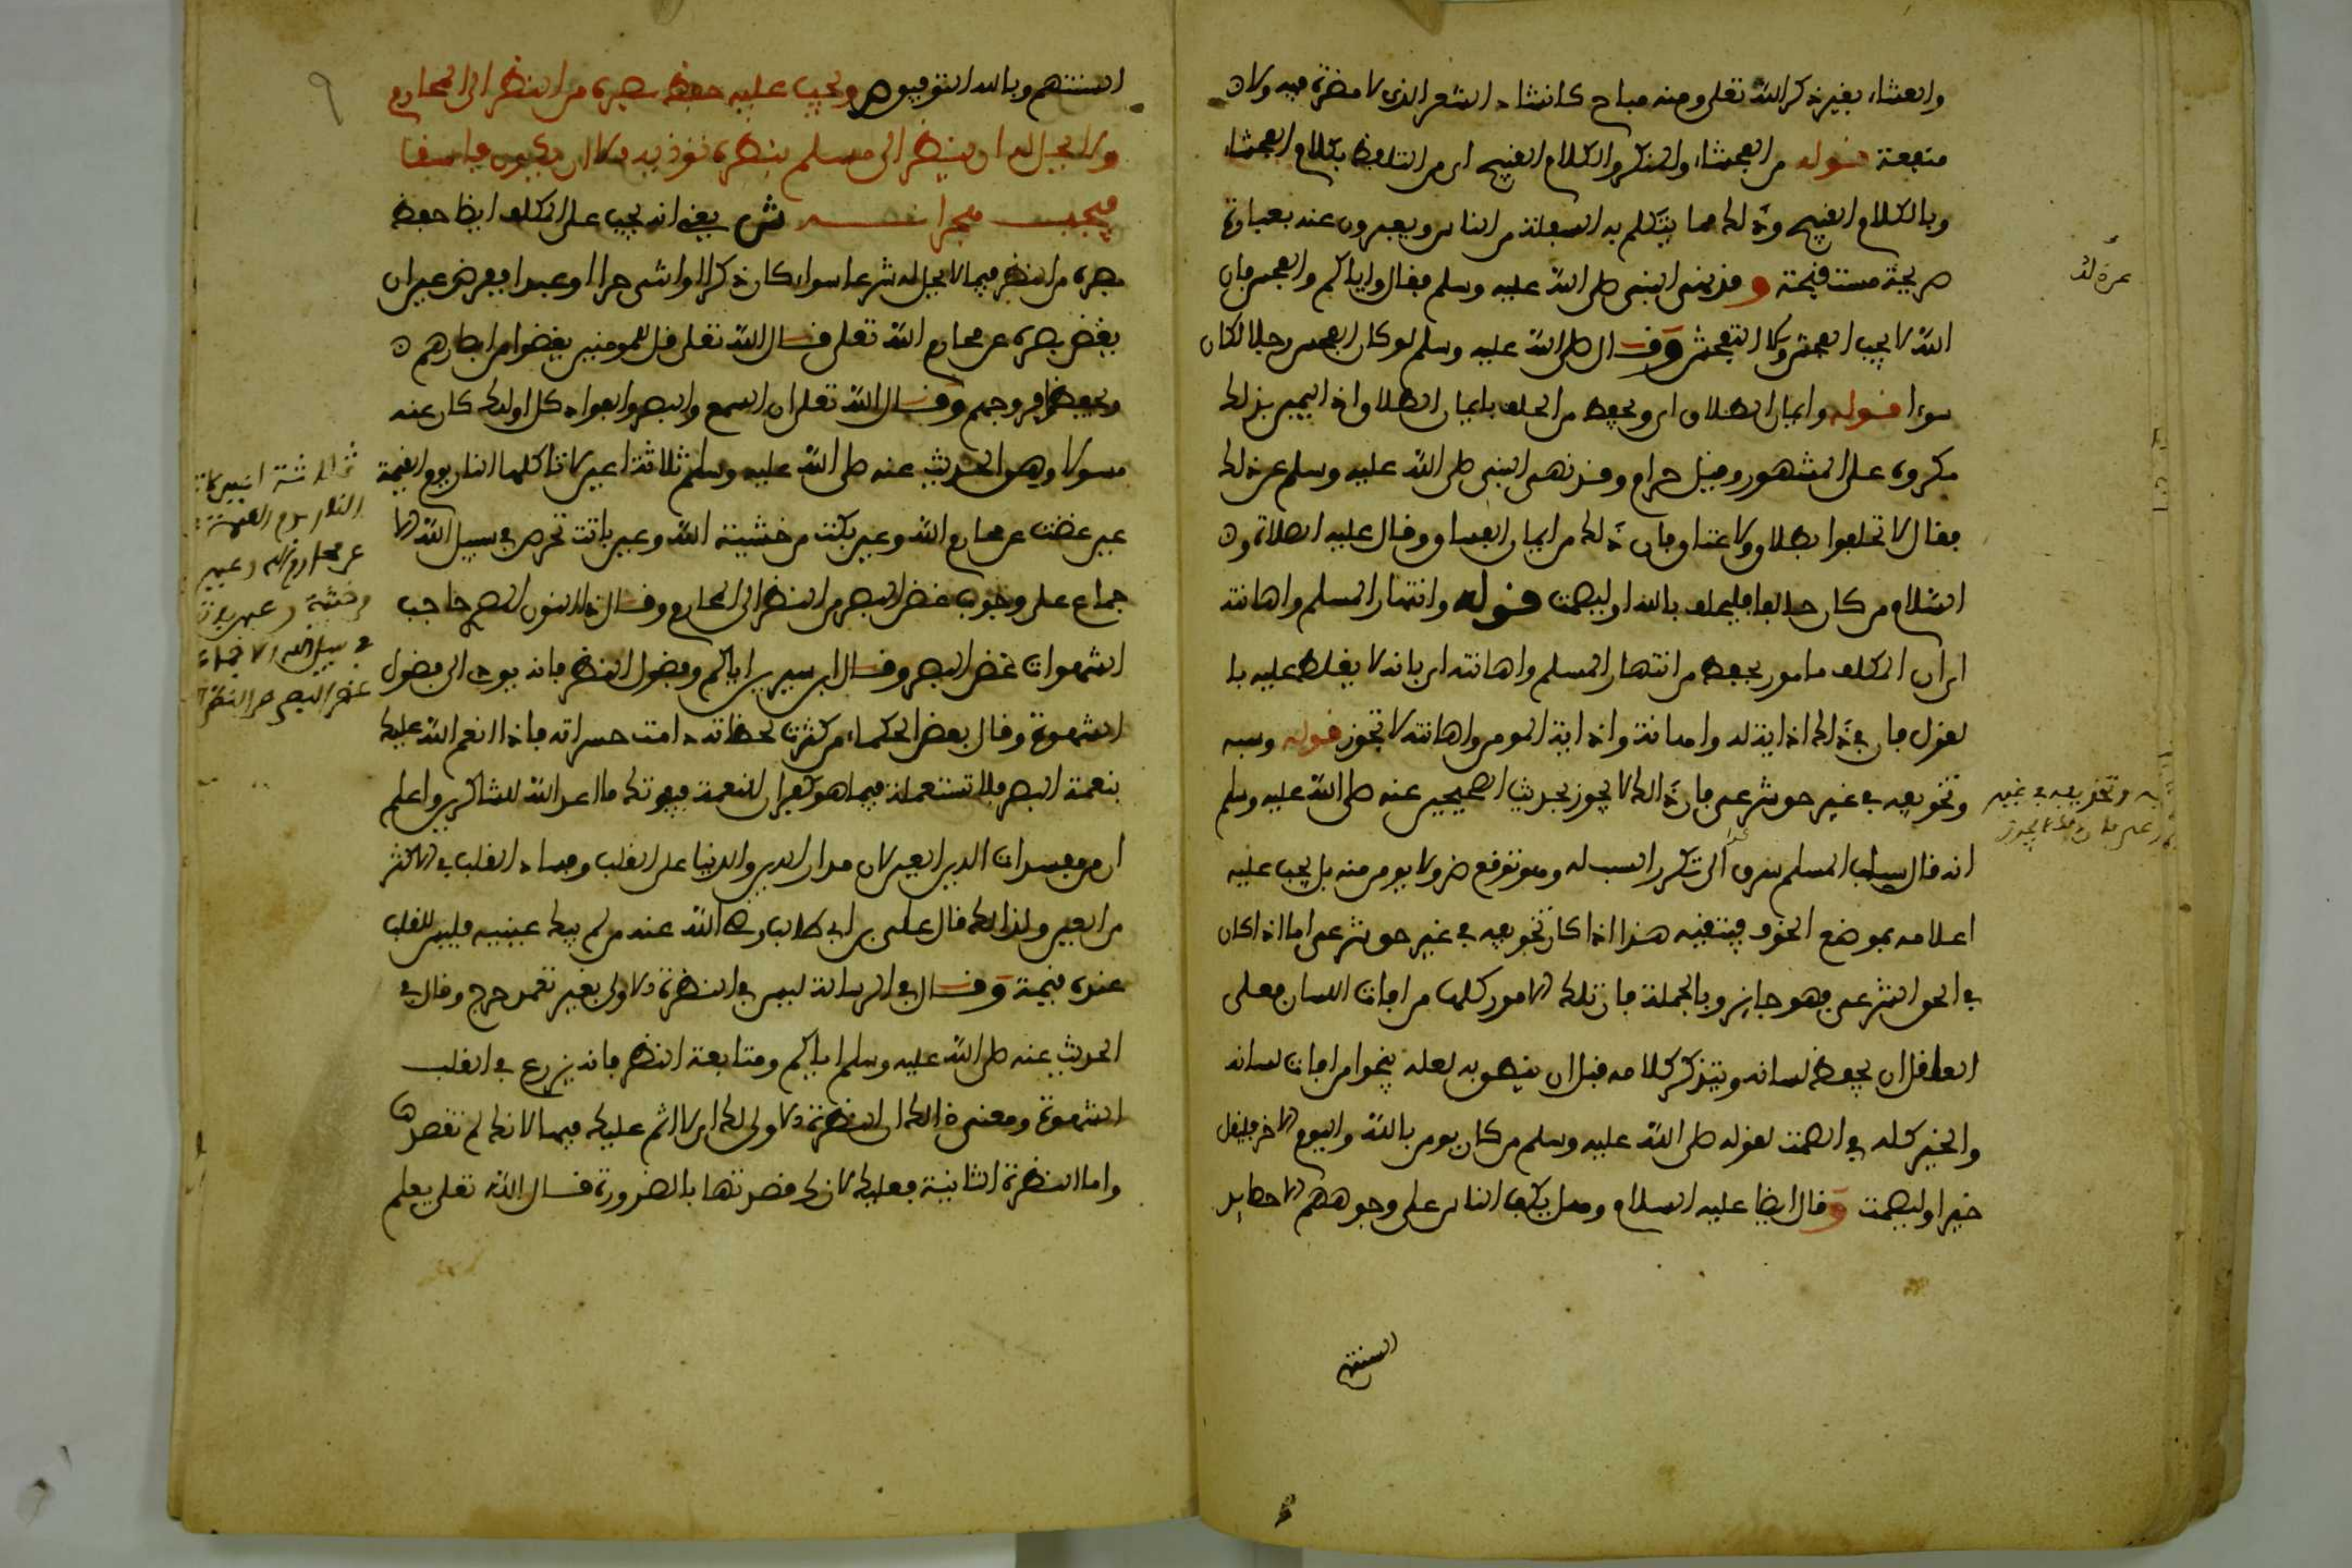 والعشاء بغير ذكر الله تعلى ومنه مباح كانشاد الشعر الذي لا مضرة فيه ولا
منفعة قوله من الفحشاء والمنكر والكلام القبيح اي من التلفظ بكلام الفحشاء
وبالكلام القبيح وذلك مما يتكلم به السفلة من الناس ويعبرون عنه بعبارة
صريحة مستقبحة وقد نهى النبي صلى الله عليه وسلم فقال واياكم والفحش فان
الله لا يحب الفحش ولا التفحش وقال صلى الله عليه وسلم لو كان الفحش رجلا لكان
سوءا قوله وايمان الطلاق اي ويحفظ من الحلف بايمان الطلاق اذ اليمين بذلك
مكروه على المشهور وقيل حرام وقد نهى النبي صلى الله عليه وسلم عن ذلك
فقال لا تحلفوا بطلاق ولا عتاق فان ذلك من ايمان الفساق وقال عليه الصلاة و
السلام من كان حالفا فليحلف بالله او ليصمت قوله وانتهار المسلم واهانته
اي ان المكلف مامور بحفظه من انتهار المسلم واهانته اي بانه لا يغلظ عليه با
لقول فان في ذلك اذاية له واهانة واذاية المومن واهانته لا تجوز قوله وسبه
وتخويفه في غير حق شرعي فان ذلك لا يجوز لحديث الصحيحين عنه صلى الله عليه وسلم
انه قال سباب المسلم فسوق الى تكرر السب له ومن توقع ضرر لا يومن منه بل يجب عليه
اعلامه بموضع الخوف فيتقيه هذا اذا كان تخويفه في غير حق شرعي اما اذا كان
في الحق الشرعي فهو جايز وبالجملة فان تلك الامور كلها من افات اللسان فعلى
العاقل ان يحفظ لسانه ويتذكر كلامه قبل ان ينطق به لعله ينجوا من افات لسانه
والخير كله في الصمت لقوله صلى الله عليه وسلم من كان يومن بالله واليوم الاخر فليقل
خيرا او ليصمت وقال ايضا عليه السلام وهل يكب الناس على وجوههم الا حصايد
السنتهم
السنتهم وبالله التوفيق ص ويجب عليه حفظ بصره من النظر الى المحارم
ولا يحل له ان ينظر الى مسلم بنظرة توذيه الا ان يكون فاسقا
فيجب هجرانه ش يعني انه يجب على المكلف ايضا حفظ
بصره من النظر فيما لا يحل له شرعا سواء كان ذكرا او انثى حرا او عبدا ففرض عين ان
يغض بصره عن محارم الله تعلى قال الله تعلى قل للمومنين يغضوا من ابصارهم
ويحفظوا فروجهم وقال الله تعلى ان السمع والبصر والفواد كل اولئك كان عنه
مسولا وفي الحديث عنه صلى الله عليه وسلم ثلاثة اعين لا تاكلها النار يوم القيمة
عين غضت عن محارم الله وعين بكت من خشية الله وعين باتت تحرص في سبيل الله الا
جماع على وجوب غض البصر من النظر الى المحارم وقال ذا النون المصري حاجب
الشهوات غض البصر وقال ابن سيرين اياكم وفضول النظر فانه يودي الى فضول
الشهوة وقال بعض الحكماء من كثرت لحظاته دامت حسراته فاذا انعم الله عليك
بنعمة البصر فلا تستعمله فيما هو كفران للنعمة فيفوتك ما اعد الله للشاكرين واعلم
ان من مفسدات الدين العين لان مدار الدين والدنيا على القلب وفساد القلب في الاكثر
من العين ولذلك قال علي بن ابي طالب رضي الله عنه من لم يملك عينيه فليس للقلب
عنده قيمة وقال في الرسالة ليس في النظرة الاولى بغير تعمد حرج وقال في
الحديث عنه صلى الله عليه وسلم اياكم ومتابعة النظر فانه يزرع في القلب
الشهوة ومعنى ذلك ان النظرة الاولى لك اي لا اثم عليك فيها لانك لم تقصدها
واما النظرة الثانية فعليك لانك قصدتها بالضرورة قال الله تعلى يعلم